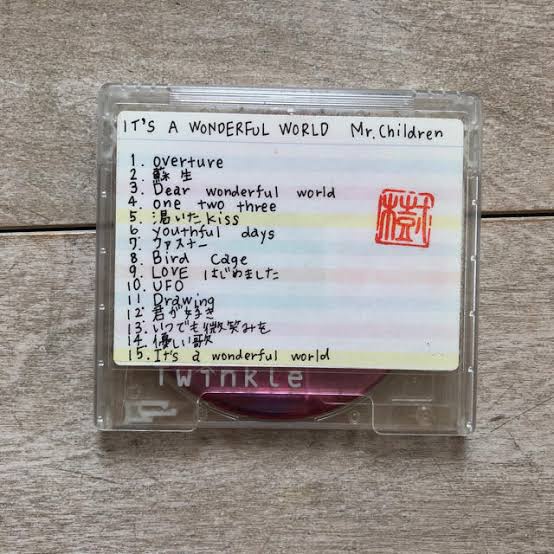 IT'S A WONDERFUL WORLD Mr.Children
1. overture
2. 蘇生
3. Dear wonderful world
4. one two three
5. 渇いたkiss
6. youthful days
7. ファスナー
8. Bird Cage
9. LOVE はじめました
10. UFO
11. Drawing
12. 君が好き
13. いつでも微笑みを
14. 優しい歌
15. It's a wonderful world
樹
Twinkle